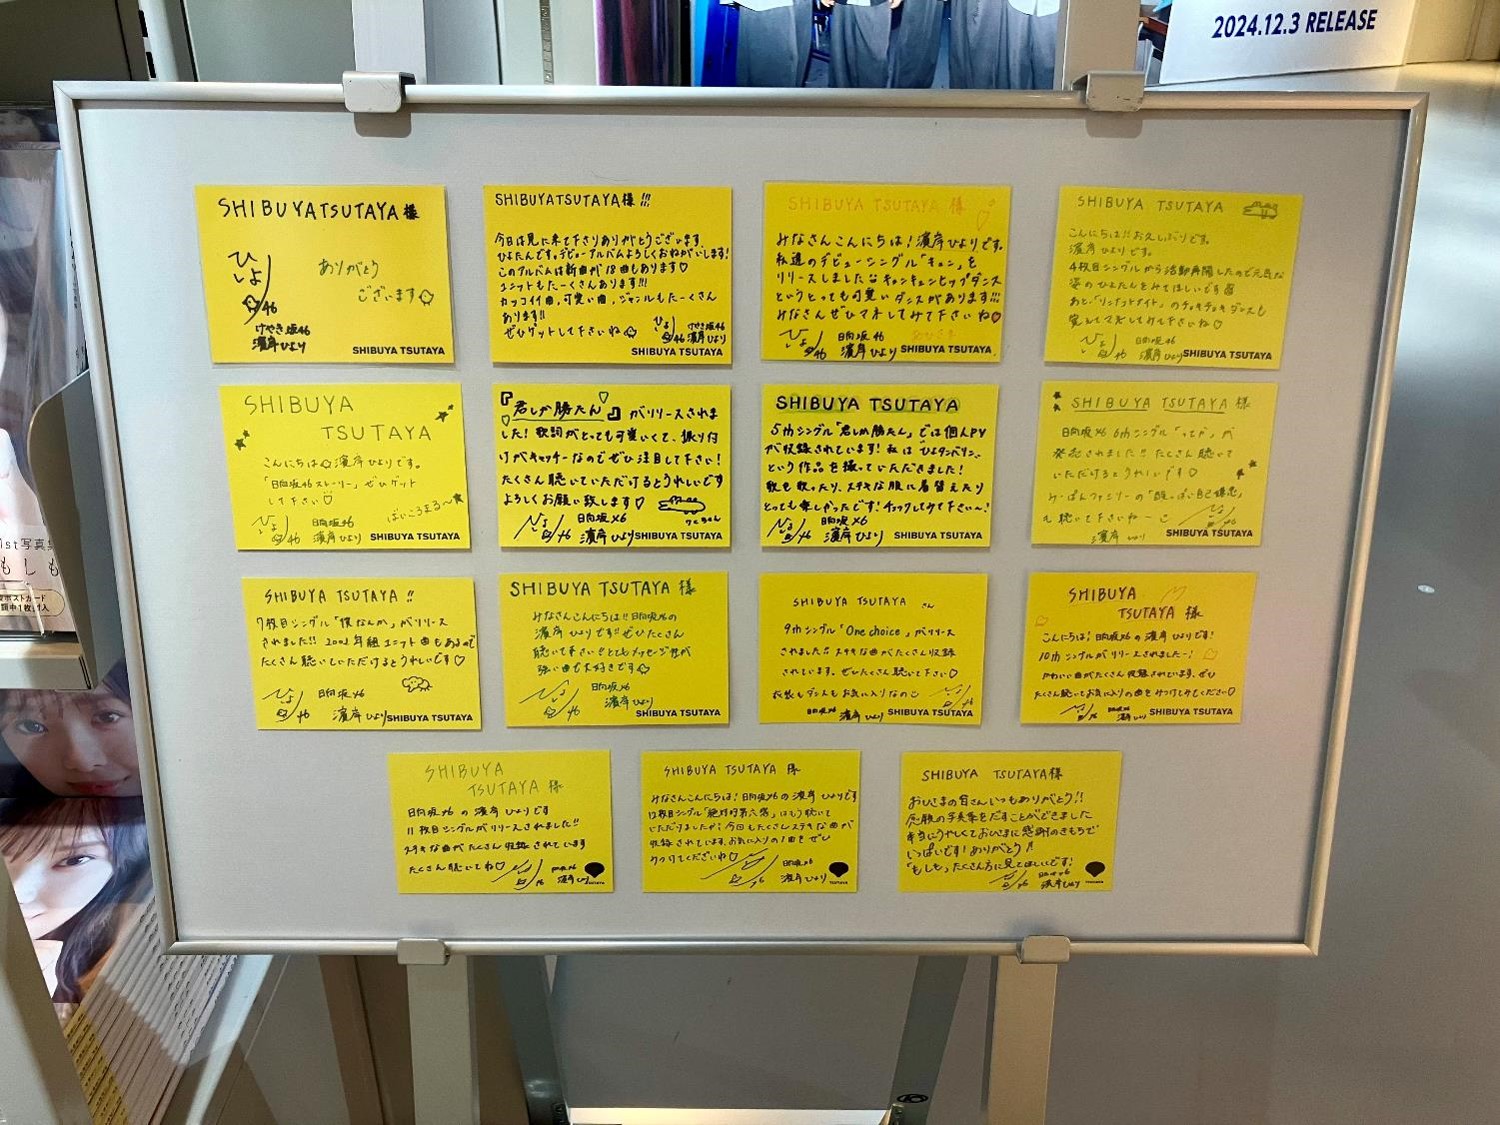 2024.12.3 RELEASE
SHIBUYATSUTAYA様
ひよ
46
ありがとう
ございます
けやき坂46
濱岸ひより
SHIBUYA TSUTAYA
SHIBUYATSUTAYA様!!!
今日は見に来て下さりありがとうございます。
ひよたんです。デビューアルバムよろしくおねがいします!
このアルバムは新曲が18曲もあります♡
ユニットもたーくさんあります!!!
カッコイイ曲、可愛い曲、ジャンルもたーくさん
あります!!
ぜひゲットして下さいね
ひよ
46
けやき坂46
濱岸ひより
SHIBUYA TSUTAYA
SHIBUYA TSUTAYA 様
みなさんこんにちは!濱岸ひよりです。
私達のデビューシングル「キュン」を
リリースしました
キュンキュンヒップダンス
というとっても可愛いダンスがあります!!!
みなさんぜひマネしてみて下さいね♡
46
日向坂46
濱岸ひより
SHIBUYA TSUTAYA
SHIBUYA TSUTAYA
こんにちは!!お久しぶりです。
濱岸ひよりです。
4枚目シングルから活動再開したので元気な
姿のひよたんをみてほしいです
あと、「
覚えてマネしてみて下さいね♡
46
日向坂46
濱岸ひより
SHIBUYA TSUTAYA
SHIBUYA
TSUTAYA
こんにちは 濱岸ひよりです。
「日向坂46ストーリー」ぜひゲット
して下さい
ばいころまる〜★
46
日向坂46
濱岸ひより
SHIBUYA TSUTAYA
『君しか勝たん』がリリースされま
した!歌詞がとっても可愛いくて、振り付
けがキャッチーなのでぜひ注目して下さい!
たくさん聴いていただけるとうれしいです
よろしくお願い致します♡
46
日向坂46
濱岸ひより
SHIBUYA TSUTAYA
SHIBUYA TSUTAYA
5thシングル「君しか勝たん」では個人PV
が収録されています!私は「ひよタンバリン」
という作品を撮っていただきました!
歌を歌ったり、ステキな服に着替えたり
とっても楽しかったです!チェックしてみて下さい〜!
46
日向坂46
濱岸ひより
SHIBUYA TSUTAYA
SHIBUYA TSUTAYA 様
日向坂46 6thシングル「ってか」が
発売されました!!たくさん聴いて
いただけるとうれしいです♡
みーぱんファミリーの「酸っぱい自己嫌悪」
も聴いて下さいねー
濱岸ひより
SHIBUYA TSUTAYA
SHIBUYA TSUTAYA !!
7枚目シングル「僕なんか」がリリース
されました!!2002年組ユニット曲もあるので
たくさん聴いていただけるとうれしいです♡
46
日向坂46
濱岸ひより
SHIBUYA TSUTAYA
SHIBUYA TSUTAYA 様
みなさんこんにちは!!日向坂46の
濱岸ひよりです!!ぜひたくさん
聴いて下さい
メッセージ性が
強い曲で大好きです
46
日向坂46
濱岸ひより
SHIBUYA TSUTAYA
SHIBUYA TSUTAYA さん
9thシングル「One choice」がリリース
されました!!ステキな曲がたくさん収録
されています。ぜひたくさん聴いて下さい♡
衣装もダンスもお気に入りなの
46
日向坂46
濱岸ひより
SHIBUYA TSUTAYA
SHIBUYA
TSUTAYA 様
こんにちは!日向坂46の濱岸ひよりです!
10thシングルがリリースされましたー!
かわいい曲がたくさん収録されています。ぜひ
たくさん聴いてお気に入りの曲をみつけてみてください♡
46
日向坂46
濱岸ひより
SHIBUYA TSUTAYA
SHIBUYA
TSUTAYA 様
日向坂46の濱岸ひよりです
11枚目シングルがリリースされました!!
ステキな曲がたくさん収録されています
たくさん聴いてね♡
46
日向坂46
濱岸ひより
TSUTAYA
SHIBUYA TSUTAYA 様
みなさんこんにちは!日向坂46の濱岸ひよりです
12枚目シングル「絶対的第六感」はもう聴いて
いただけましたか?今回もたくさんステキな曲が
収録されています。お気に入りの1曲をぜひ
みつけてくださいね♡
46
日向坂46
濱岸ひより
TSUTAYA
SHIBUYA TSUTAYA様
おひさまの皆さんいつもありがとう!!
念願の写真集をだすことができました
本当にうれしくておひさまに感謝のきもちで
いっぱいです!ありがとう!!
「もしも」たくさん方に見てほしいです!
46
日向坂46
濱岸ひより
TSUTAYA
1st写真集
もしも